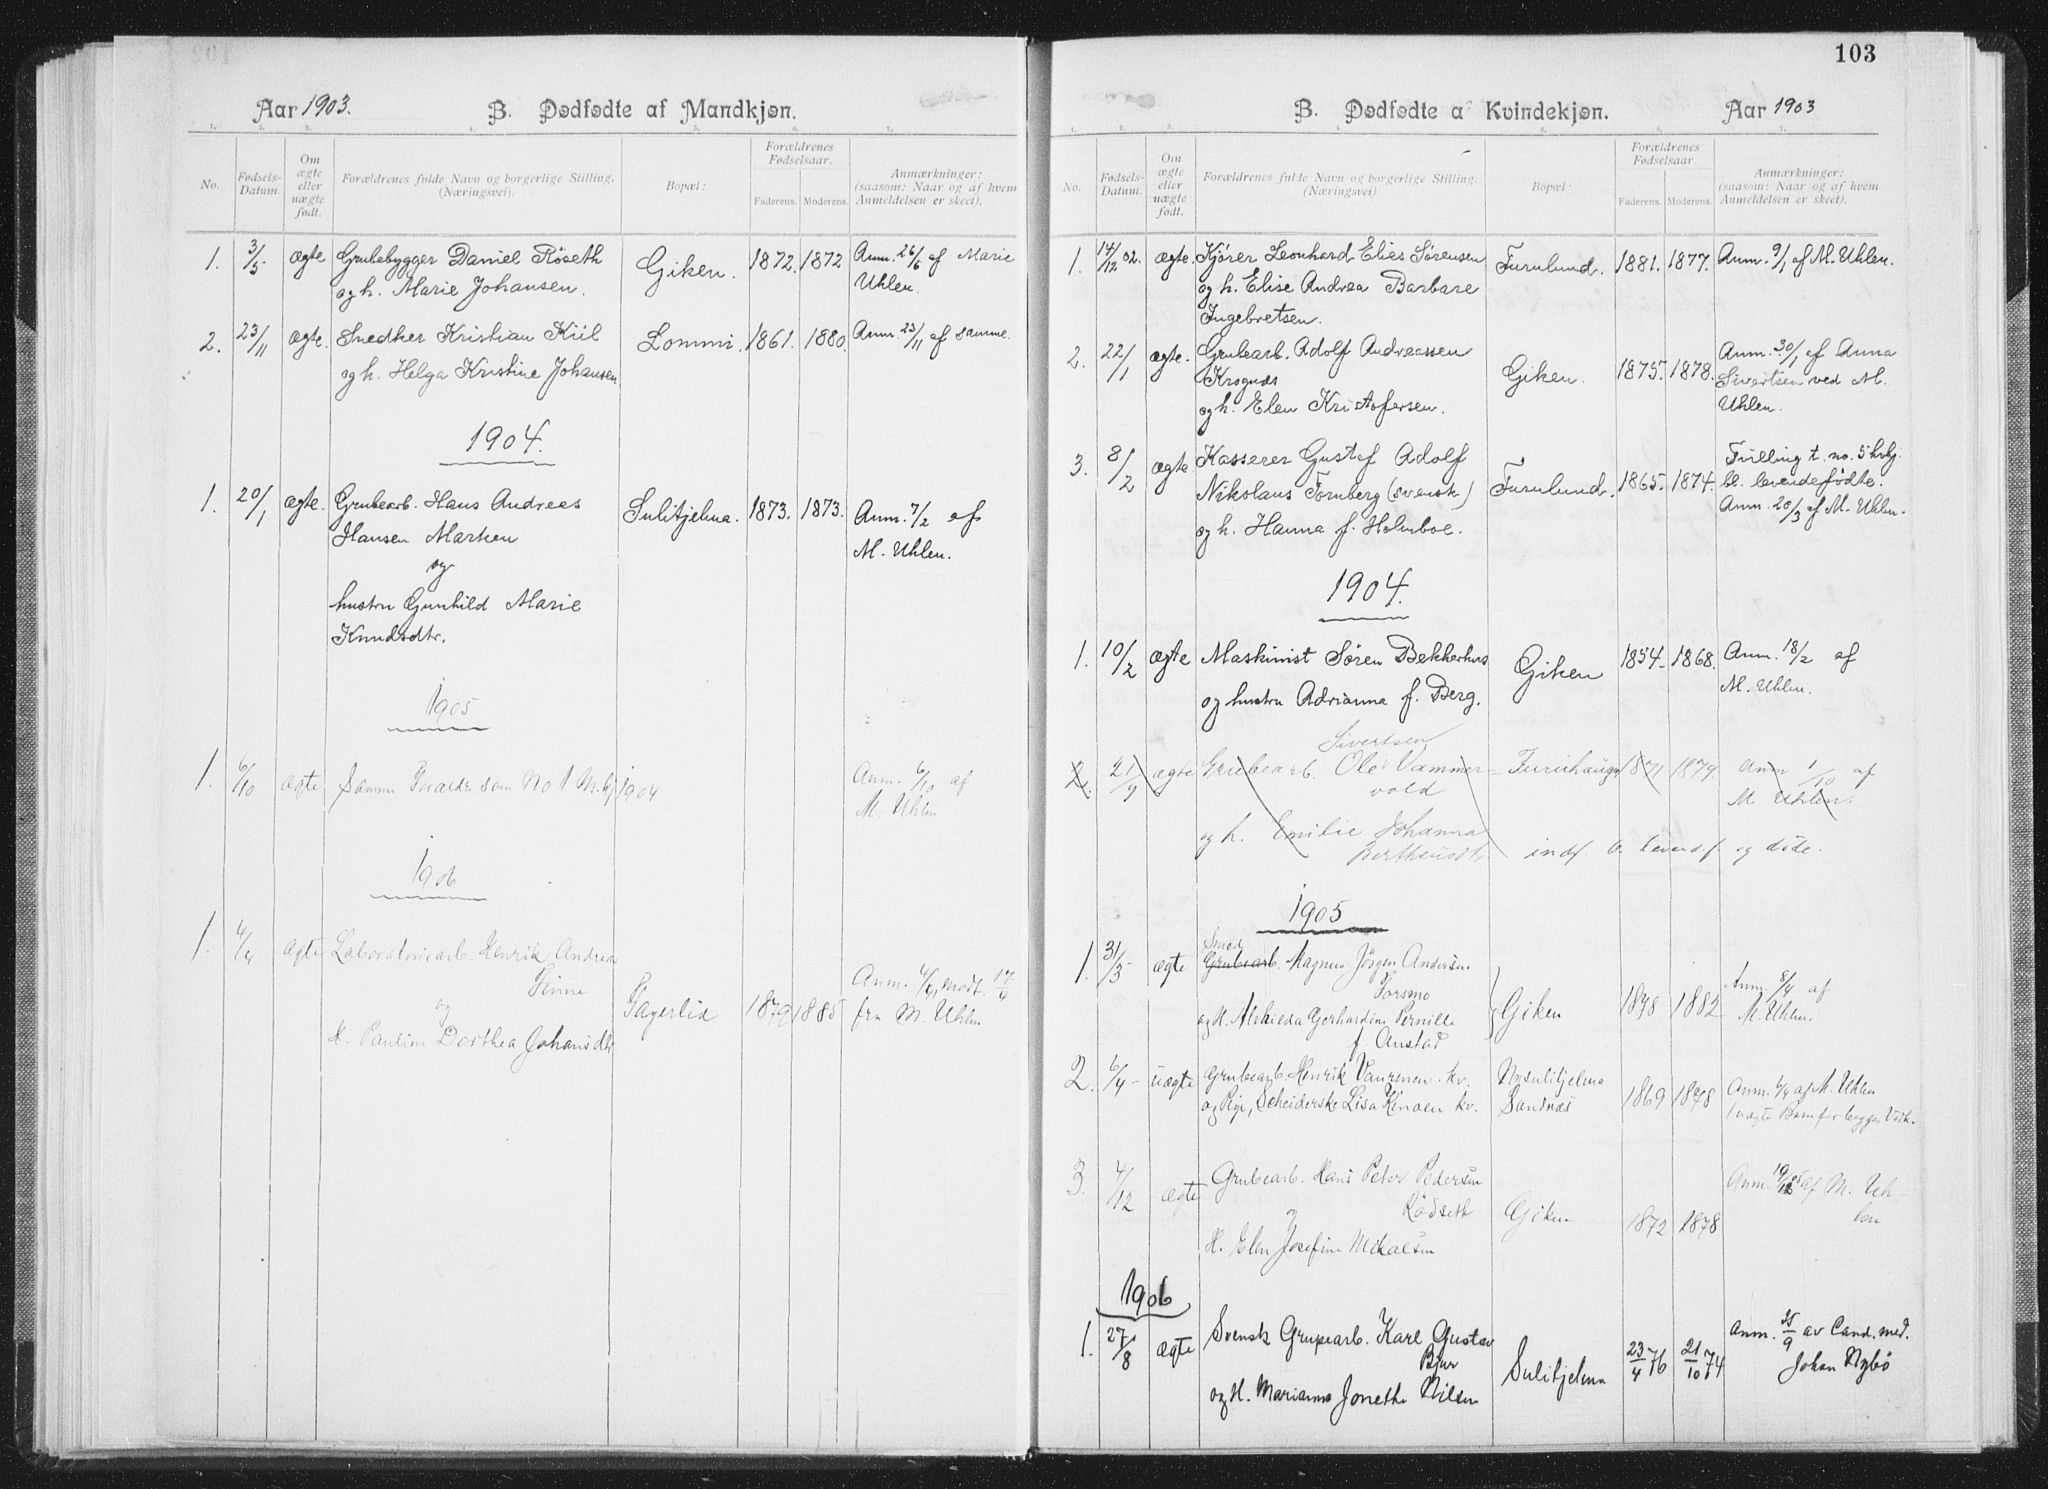 103
Aar 1903. B. Dødfødte af Mandkjøn.
1. 2. 3. 4. 5. 6. 7.
No.
Fødsels-Datum.
Om ægte eller uægte født.
Forældrenes fulde Navn og borgerlige Stilling.
(Næringsvei).
Bopæl:
Forældrenes Fødselsaar.
Faderens. Moderens.
Anmærkninger:
(saasom: Naar og af hvem
Anmeldelsen er skeet).
1. 3/5 ægte Grubebygger Daniel Röseth Giken. 1872. 1872 Anm. 26/6 af Marie
og h. Marie Johansen. Uhlen.
2. 23/11 ægte. Snedker Kristian Kiil Lommi. 1861. 1880. Anm. 23/11 af samme.
og h. Helga Kristine Johansen
1904.
1. 20/1 ægte. Grubearb. Hans Andreas Sulitjelma. 1873. 1873. Anm. 7/2 af
Hansen Marken M. Uhlen.
og
hustru Gunhild Marie
Knudsdtr.
1905
1. 6/10 ægte Samme Foraldr. som No 1 M.kj 1904 Anm. 6/10 af
M. Uhlen
1906
1. 4/4 ægte Laboratoriearb. Henrik Andreas
Finne
og
Fagerlid 1879 1885 Anm. 4/4, modt. 17/4
fra M. Uhlen
H. Pauline Dorthea Johansdtr.
B. Dødfødte a Kvindekjøn. Aar 1903
1. 2. 3. 4. 5. 6. 7.
No.
Fødsels-Datum.
Om ægte eller uægte født.
Forældrenes fulde Navn og borgerlige Stilling.
(Næringsvei).
Bopæl:
Forældrenes Fødselsaar
Faderens. Moderens.
Anmærkninger:
(saasom: Naar og af hvem
Anmeldelsen er skeet).
1. 14/12 02. ægte. Kjører Leonhard Elies Sørensen Furulund. 1881. 1877. Anm. 9/1 af M. Uhlen.
og h. Elise Andrea Barbare
Ingebretsen.
2. 22/1 ægte. Grubearb. Adolf Andreassen Giken. 1875. 1878. Anm. 30/1 af Anna
Krognæs Sivertsen ved M.
og h. Elen Kristofersen. Uhlen.
3. 8/2 ægte Kasserer Gustaf Adolf Furulund. 1865. 1874. Tvilling t. no. 5 kvkj.
Nikolaus Tornberg (svensk) bl. levendefødte.
og h. Hanna f. Holmboe. Anm. 20/3 af M. Uhlen.
1904.
1. 10/2 ægte Maskinist Søren Bekkerhus Giken 1854 1868. Anm. 18/2 af
og hustru Adrianna f. Berg. M. Uhlen.
Sivertsen
2. 21/9 ægte Grubearb. Ole Vammervold Furuhaugen 1871 1879 Anm 1/10 af
M Uhlen.
og h. Emilie Johanna
Bertheusdtr. indf. b. levendf og døde.
1905
Smed
1. 31/3 ægte Grubearb. Magnus Jörgen Andersen
Forsmo
og H. Alvhilda Gerhardine Pernille Giken 1878 1882 Anm. 8/4 af
f. Anstad M. Uhlen.
2. 6/4 uægte Grubearb. Henrik Vaurenen. kv. Nysulitjelma 1869 1878 Anm. 6/4 af M. Uhlen
og Pige, Scheiderske Lisa Kinoen kv. Sandnæs 1 uægte Barn for begges Vedk.
3. 4/12 ægte Grubearb. Hans Peter Pedersen
Rödseth
og
Giken 1872 1878 Anm. 19/12 05 af M. Uhlen
H. Elen Josefine Mikalsen
1906
1. 27/8 ægte Svensk Grupearb. Karl Gustav
Bjur
Sulitjelma 23/4 76 21/10 74 Anm. 25/9 av Cand. med.
Johan Nybö
og H. Marianna Jonethe Nilsen